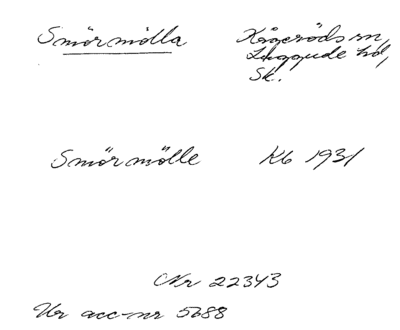 Smörmölla
Kågeröds sn,
Luggude hd,
Sk.
Smörmölle Kb 1931
Nr 22343
Ur acc-nr 5688